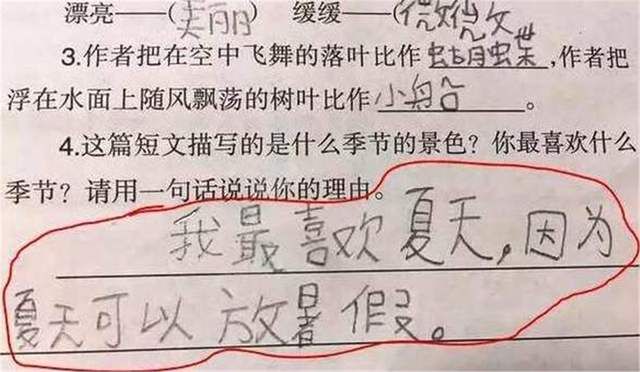 漂亮——(美丽) 缓缓——(微微)
3.作者把在空中飞舞的落叶比作蝴蝶,作者把
浮在水面上随风飘荡的树叶比作小船。
4.这篇短文描写的是什么季节的景色？你最喜欢什么
季节？请用一句话说说你的理由。
我最喜欢夏天,因为
夏天可以放暑假。